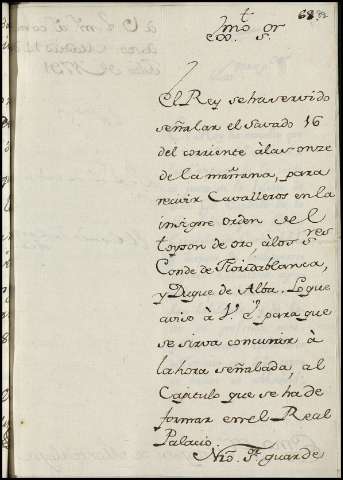 68.
Exmo. Sor.
El Rey se ha servido
señalar el Savado 16
del corriente à las onze
de la mañana, para
recivir Cavalleros en la
insigne orden del
toyson de oro, à los Sres
Conde de Floridablanca,
y Duque de Alba. Lo que
aviso à V. E. para que
se sirva concurrir à
la hora señalada, al
Capitulo que se ha de
formar en el Real
Palacio.
Nro. Sr. guarde